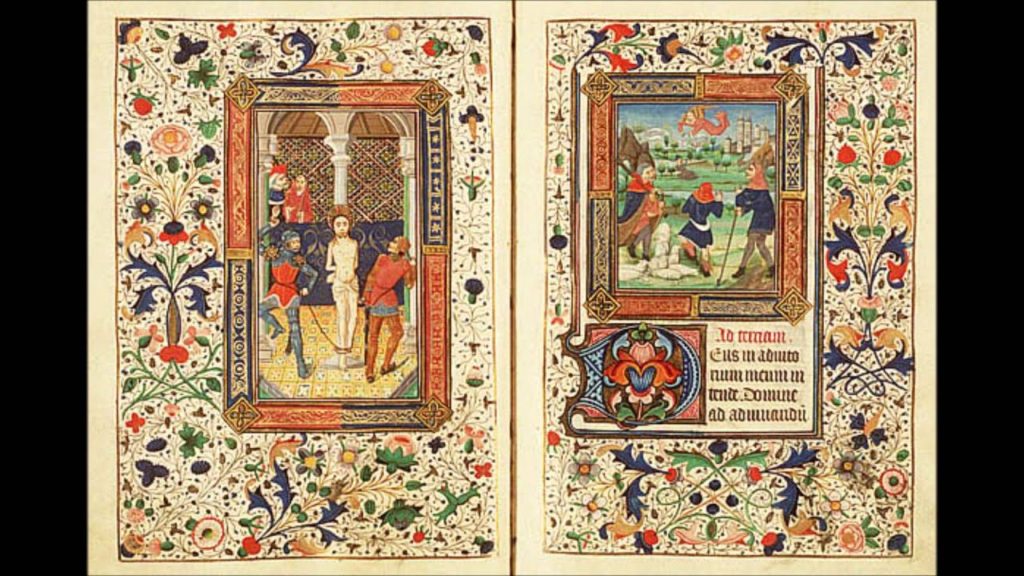 Ad terciam.
Eus in adiuto
rium meum in
tende. Domine
ad adiuuandū